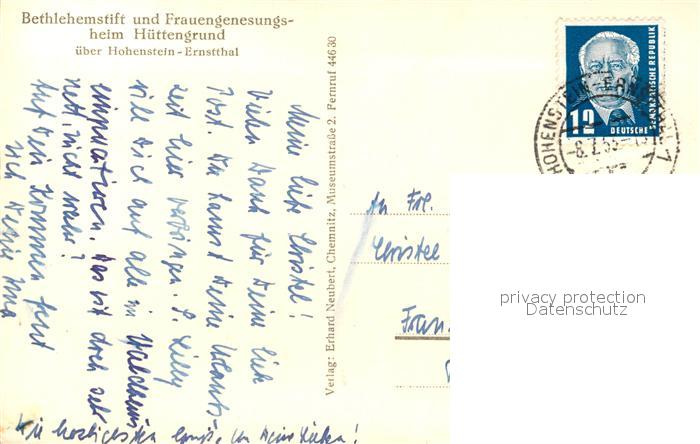 Bethlehemstift und Frauengenesungs-
heim Hüttengrund
über Hohenstein-Ernstthal
Meine liebe Christel!
Vielen Dank für Deine liebe
Post. Du kannst Deine Urlaubs-
zeit hier verbringen. S. Lilly
will Dich auf alle in Waldheim
einquartieren. Das ist doch sehr
nett, nicht wahr?
Auf Dein Kommen freut
sich Deine
Die herzlichsten Grüße an Deine Lieben!
Verlag: Erhard Neubert, Chemnitz, Museumstraße 2. Fernruf 44630
12
DEUTSCHE
DEMOKRATISCHE REPUBLIK
HOHENSTEIN-ERNSTTHAL 1
-8.7.53
An Frl.
Christel
Fran
privacy protection
Datenschutz